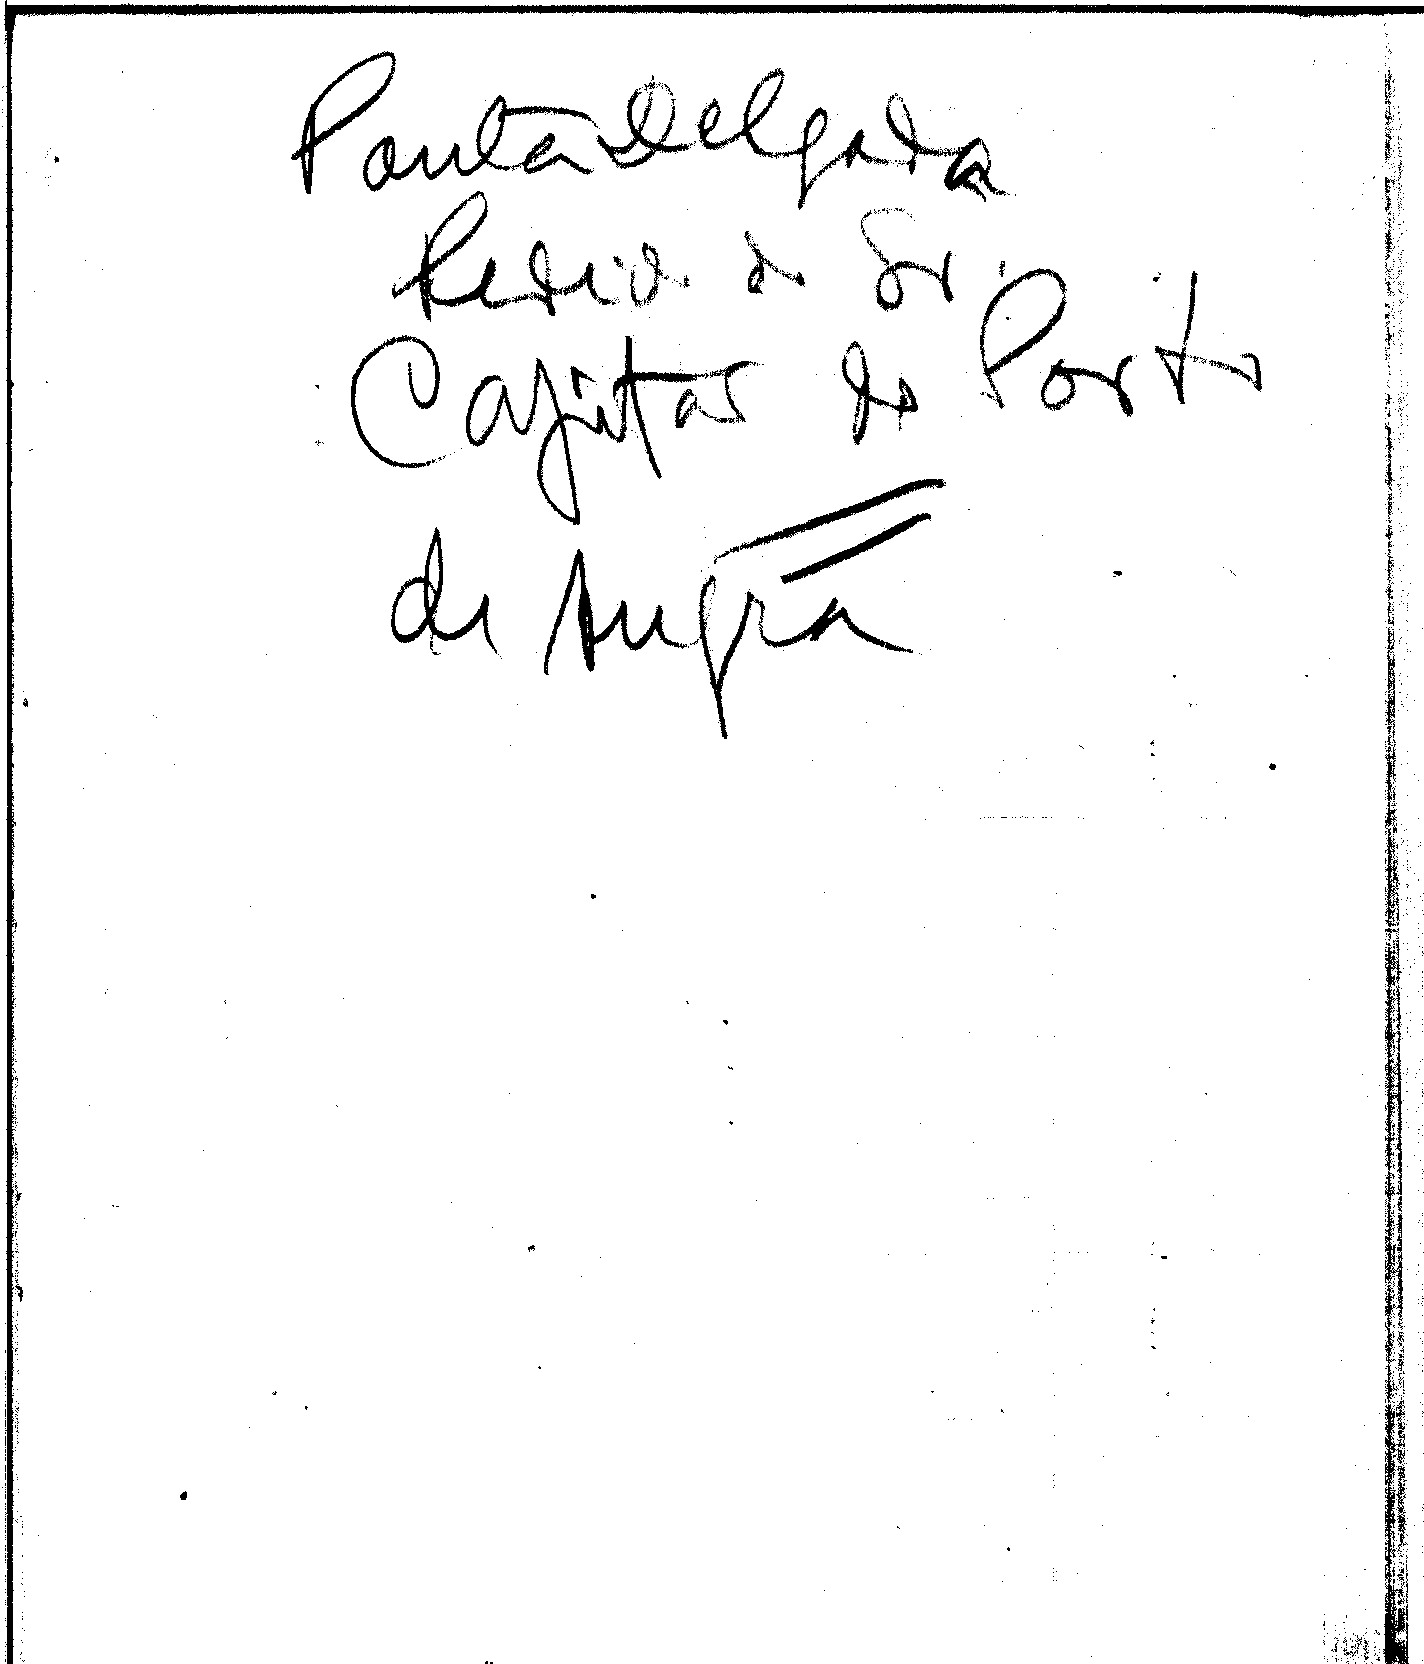 Ponta Delgada
Pedido do Sr.
Capitão do Porto
de Angra